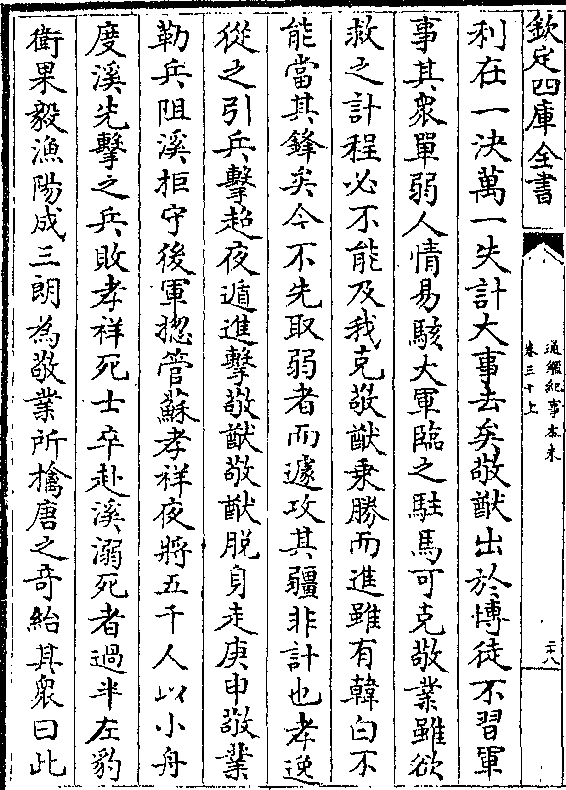 欽定四庫全書
通鑑紀事本末
卷三十上
二十八
利在一決萬一失計大事去矣敬猷出於博徒不習軍
事其衆單弱人情易駭大軍臨之駐馬可克敬業雖欲
救之計程必不能及我克敬猷乗勝而進雖有韓白不
能當其鋒矣今不先取弱者而遽攻其疆非計也孝逸
從之引兵擊超夜遁進擊敬猷敬猷脱身走庚申敬業
勒兵阻溪拒守後軍揔管蘇孝祥夜將五千人以小舟
度溪先擊之兵敗孝祥死士卒赴溪溺死者過半左豹
衛果毅漁陽成三朗為敬業所擒唐之竒紿其衆曰此